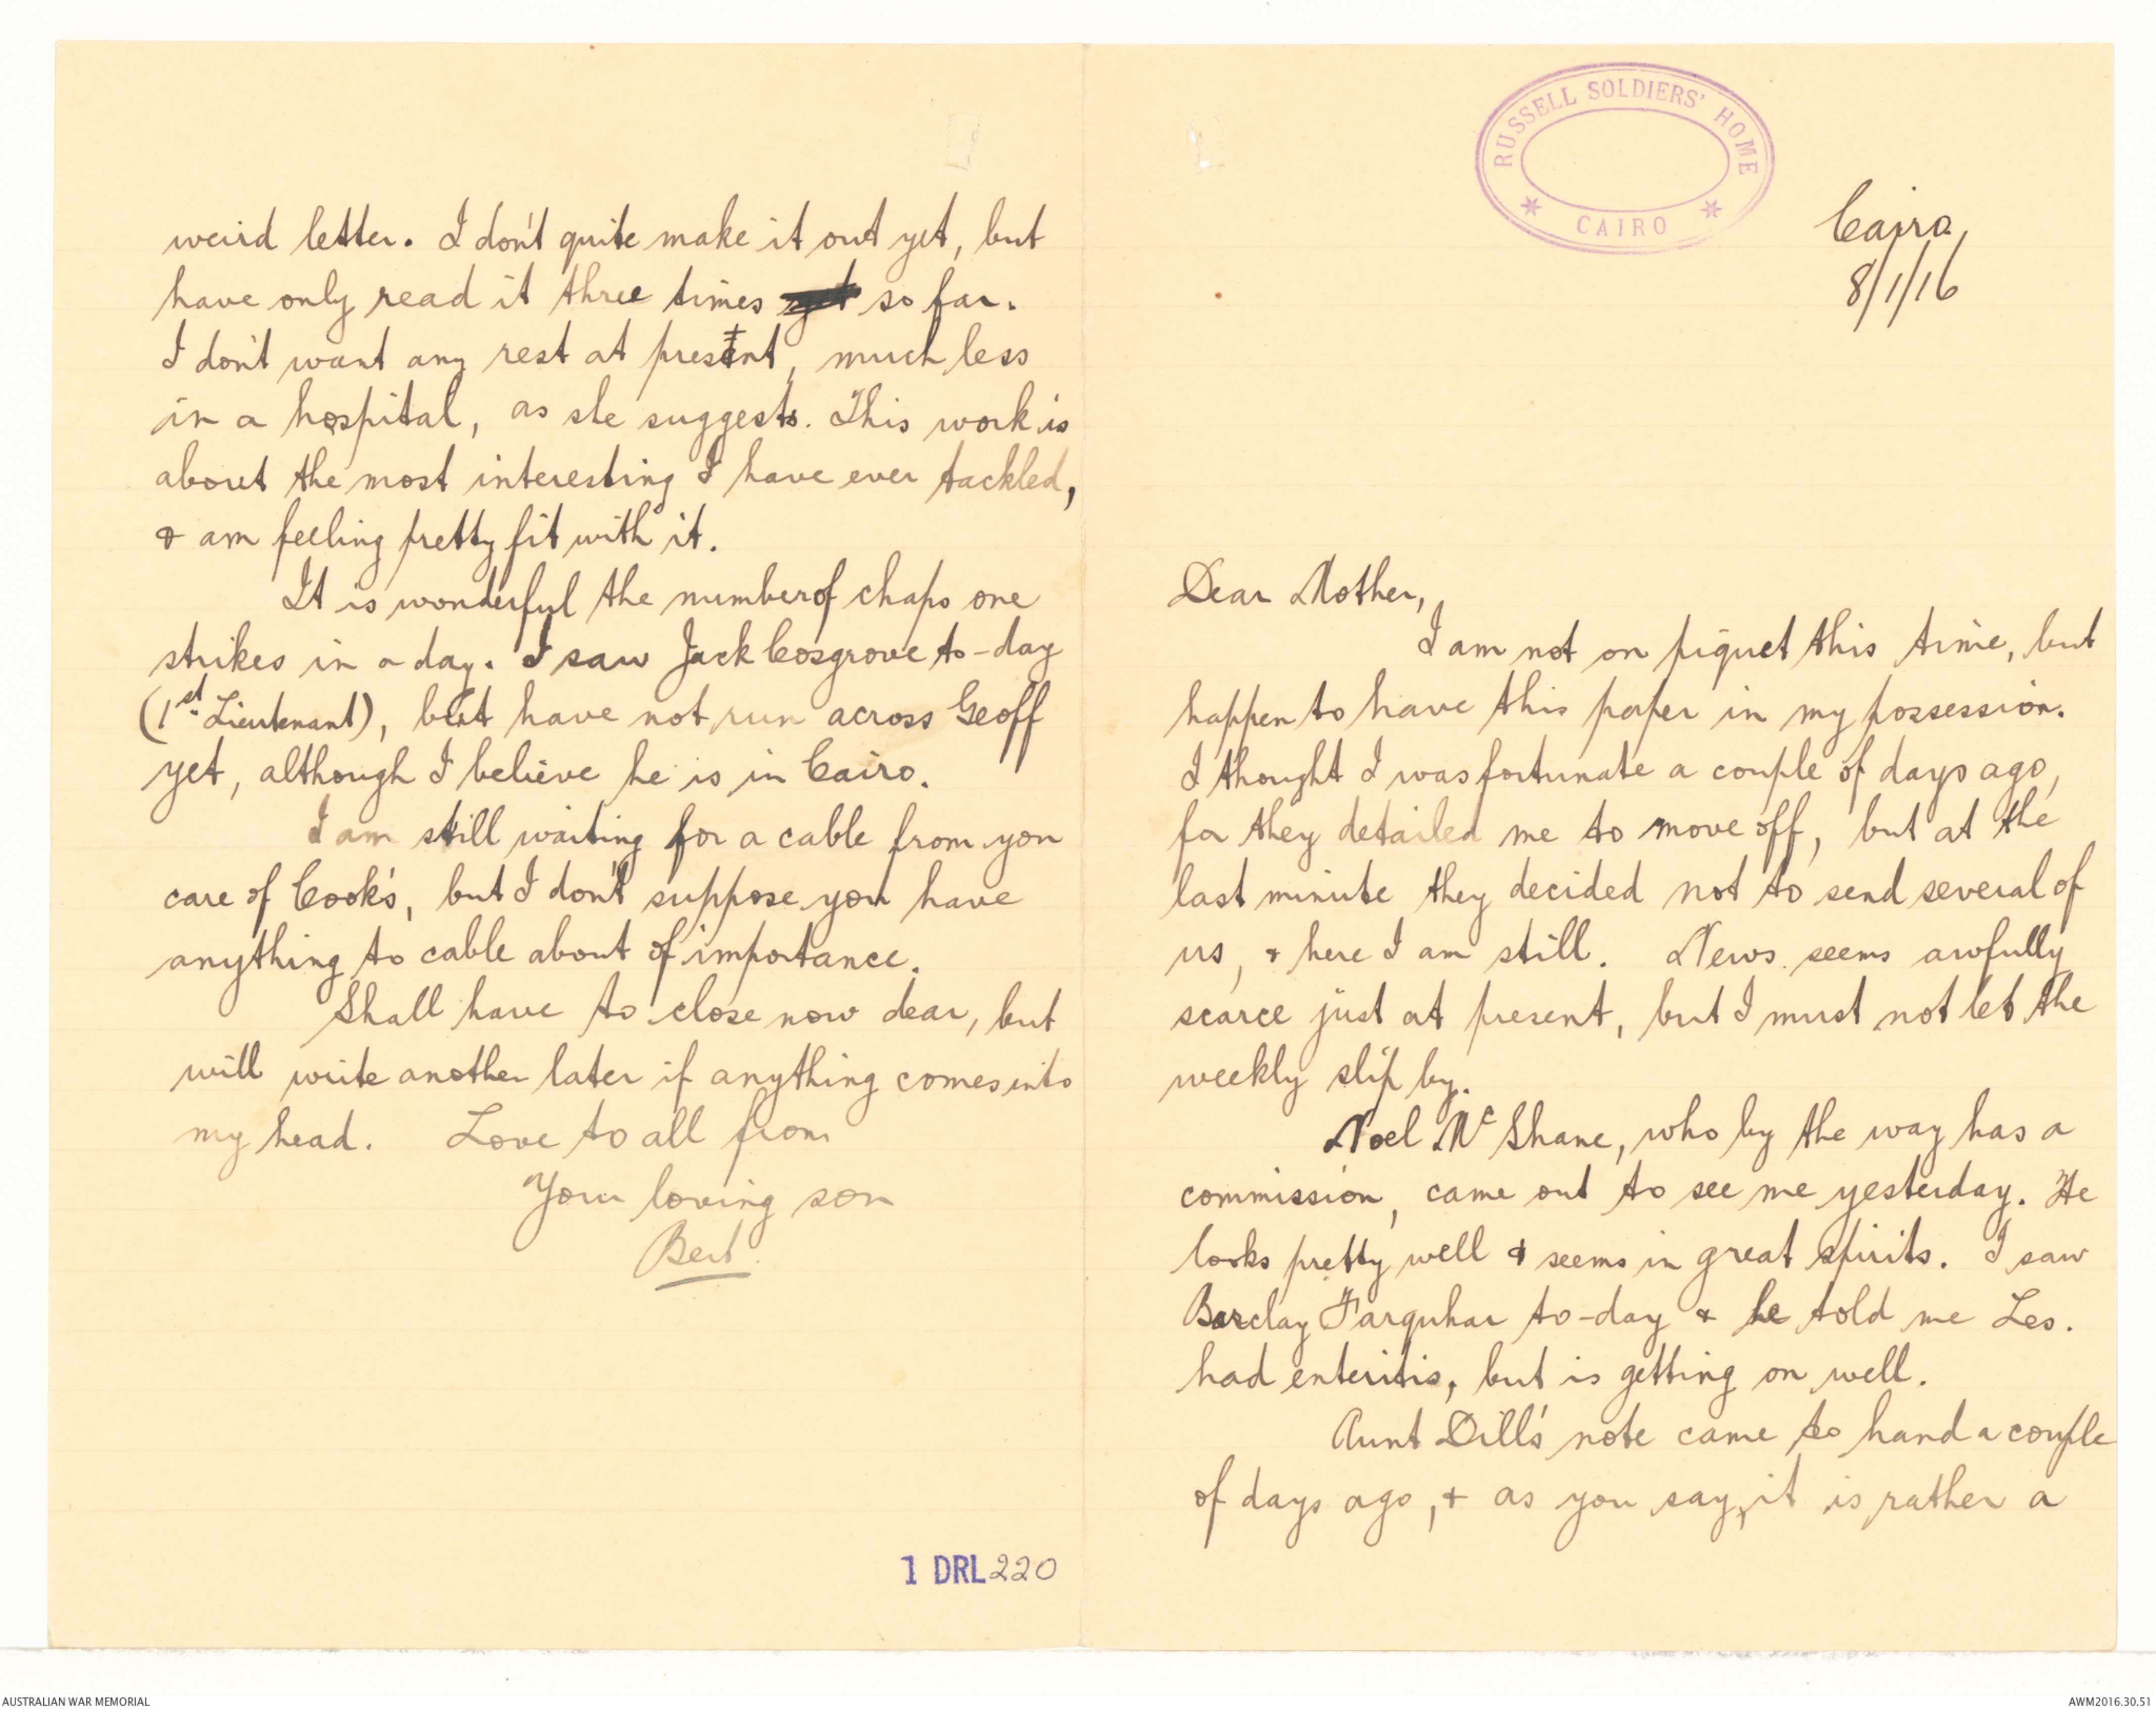 RUSSELL SOLDIERS' HOME
* CAIRO *
Cairo,
8/1/16
Dear Mother,
I am not on piquet this time, but
happen to have this paper in my possession.
I thought I was fortunate a couple of days ago,
for they detailed me to move off, but at the
last minute they decided not to send several of
us, & here I am still. News seems awfully
scarce just at present, but I must not let the
weekly slip by.
Noel McShane, who by the way has a
commission, came out to see me yesterday. He
looks pretty well & seems in great spirits. I saw
Barclay Farquhar to-day & he told me Les.
had enteritis, but is getting on well.
Aunt Dill's note came to hand a couple
of days ago, & as you say, it is rather a
weird letter. I don't quite make it out yet, but
have only read it three times yet so far.
I don't want any rest at present, much less
in a hospital, as she suggests. This work is
about the most interesting I have ever tackled,
& am feeling pretty fit with it.
It is wonderful the number of chaps one
strikes in a day. I saw Jack Cosgrove to-day
(1st. Lieutenant), but have not run across Geoff
yet, although I believe he is in Cairo.
I am still waiting for a cable from you
care of Cook's, but I don't suppose you have
anything to cable about of importance.
Shall have to close now dear, but
will write another later if anything comes into
my head. Love to all from
Your loving son
Bert.
1 DRL 220
AUSTRALIAN WAR MEMORIAL
AWM2016.30.51